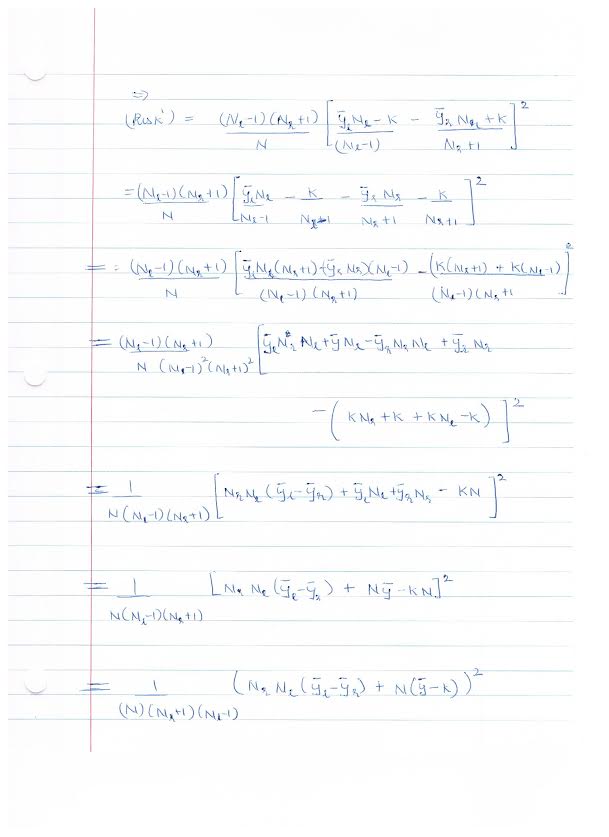 ⇒
(Risk') = (N_l-1)(N_r+1)/N [ (ȳ_l N_l - K)/(N_l-1) - (ȳ_r N_r + K)/(N_r+1) ]^2
= (N_l-1)(N_r+1)/N [ ȳ_l N_l/(N_l-1) - K/(N_l-1) - ȳ_r N_r/(N_r+1) - K/(N_r+1) ]^2
= (N_l-1)(N_r+1)/N [ (ȳ_l N_l(N_r+1) + (-ȳ_r N_r)(N_l-1))/((N_l-1)(N_r+1)) - (K(N_r+1) + K(N_l-1))/((N_l-1)(N_r+1 ]^2
= (N_l-1)(N_r+1)/(N (N_l-1)^2 (N_r+1)^2) [ ȳ_l N_r N_l + ȳ N_l - ȳ_r N_r N_l + ȳ_r N_r
- ( K N_r + K + K N_l - K ) ]^2
= 1/(N(N_l-1)(N_r+1)) [ N_r N_l (ȳ_l - ȳ_r) + ȳ_l N_l + ȳ_r N_r - KN ]^2
= 1/(N(N_l-1)(N_r+1)) [ N_r N_l (ȳ_l - ȳ_r) + Nȳ - KN ]^2
= 1/((N)(N_r+1)(N_l-1)) ( N_r N_l (ȳ_l - ȳ_r) + N(ȳ - K) )^2